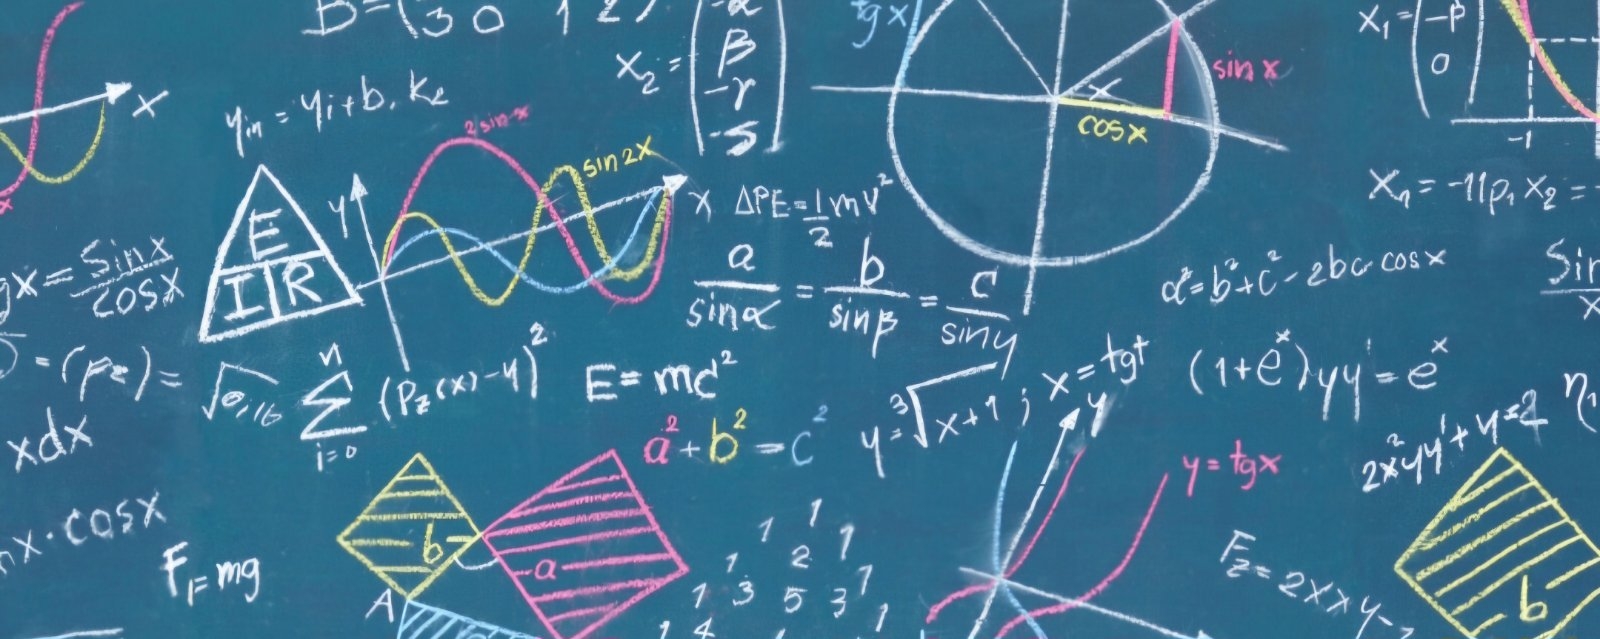 B = (3 0 1 2)
x₂ = (-α β -γ -5)
tg x
sin x
cos x
x
x₁ = (-β 0
-1
x
yᵢₙ = yᵢ + b. k₂
2 sin x
sin 2x
y
x
E
I R
ΔPE = 1/2 mv²
x₁ = -11p, x₂ = -
gx = sinx/cosx
a/sinα = b/sinβ = c/siny
a² = b² + c² - 2bc cosx
Sin
x
= (pz) =
√0,16
n
∑ (Pz(x) - y)²
i=0
E = mc²
y = ³√x+1 ; x = tgt
(1+eˣ) yy' = eˣ
xdx
a² + b² = c²
y
y = tgx
2x²yy' + y = 2
η₁
nx · cosx
F₁ = mg
b
a
A
1
1 1
1 2 1
1 3 5 3 1
1 4
Fz = 2xxy -
b